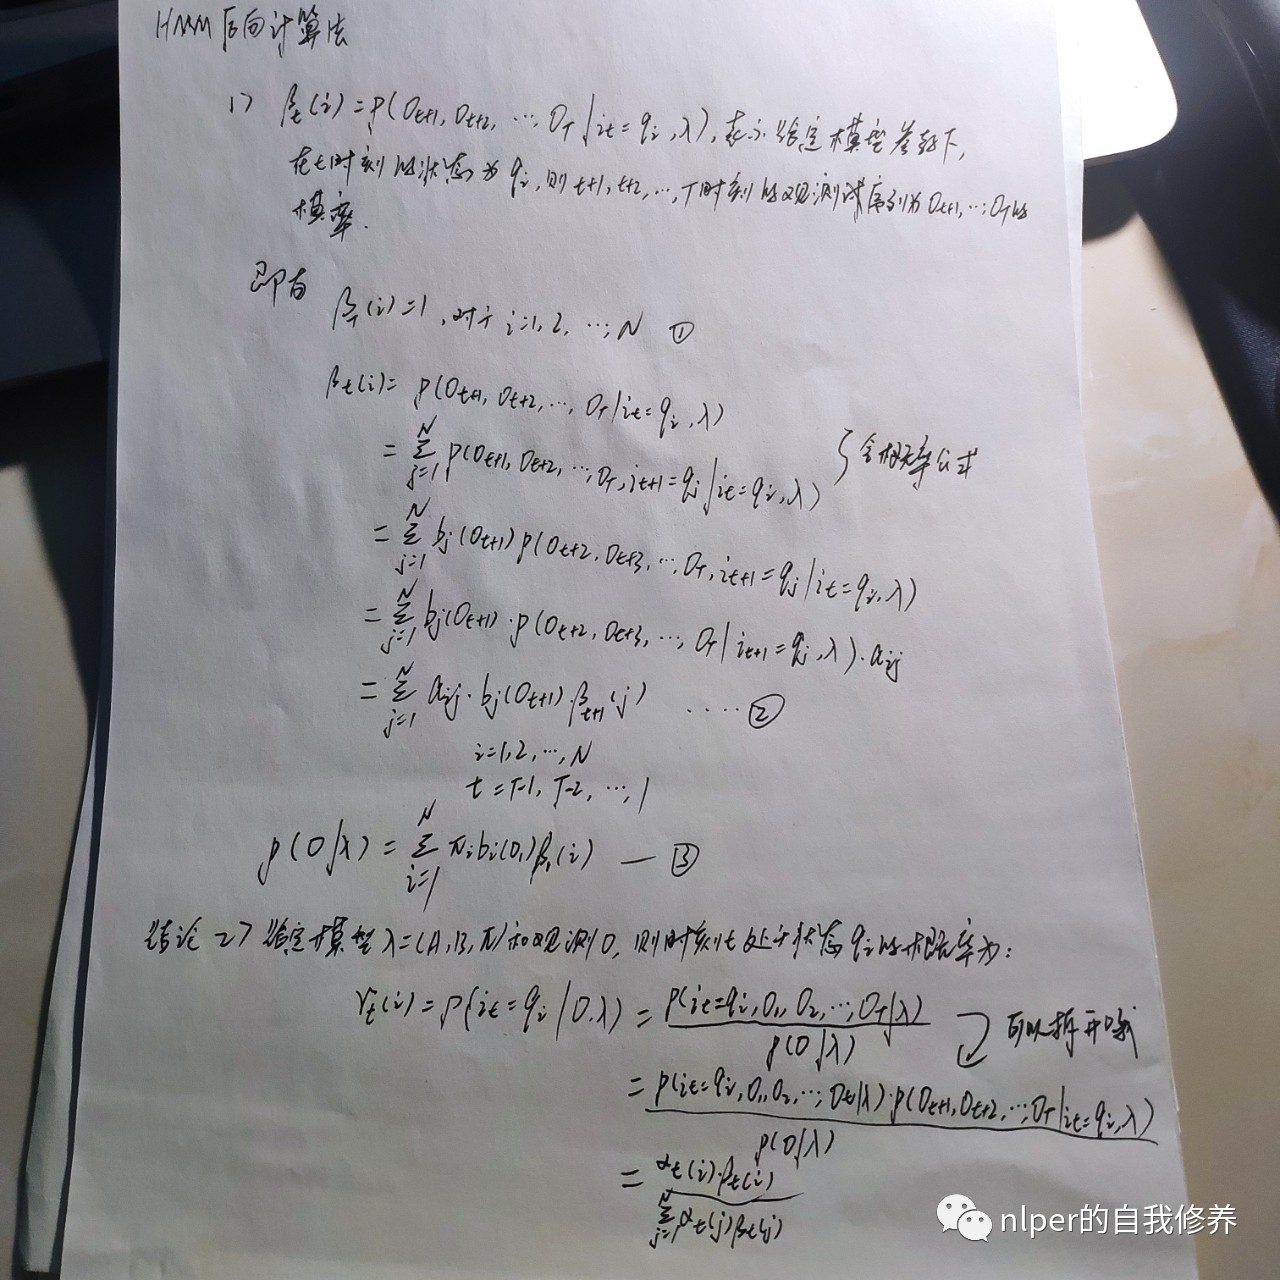 HMM后向计算法
1) βt(i)=P(Ot+1, Ot+2, …, OT|it=qi, λ), 表示给定模型参数下,
在t时刻的状态为qi, 则t+1, t+2, …, T时刻的观测序列为Ot+1, …, OT的
概率.
即有
βT(i)=1, 对于i=1, 2, …, N ①
βt(i)= P(Ot+1, Ot+2, …, OT|it=qi, λ)
= Σ_{j=1}^{N} P(Ot+1, Ot+2, …, OT, it+1=qj|it=qi, λ) } 全概率公式
= Σ_{j=1}^{N} bj(Ot+1) P(Ot+2, Ot+3, …, OT, it+1=qj|it=qi, λ)
= Σ_{j=1}^{N} bj(Ot+1)·P(Ot+2, Ot+3, …, OT|it+1=qj, λ)·aij
= Σ_{j=1}^{N} aij·bj(Ot+1)·βt+1(j) ····②
i=1, 2, …, N
t=T-1, T-2, …, 1
P(O|λ) = Σ_{i=1}^{N} πibi(O1)β1(i) — ③
结论 2) 给定模型λ=(A, B, π)和观测O, 则时刻t处于状态qi的概率为:
γt(i)=P(it=qi|O, λ) = P(it=qi, O1, O2, …, OT|λ) / P(O|λ) 可以拆开哦
= P(it=qi, O1, O2, …, Ot|λ)·P(Ot+1, Ot+2, …, OT|it=qi, λ) / P(O|λ)
= αt(i)·βt(i) / Σ_{j=1}^{N} αt(j)βt(j)
nlper的自我修养